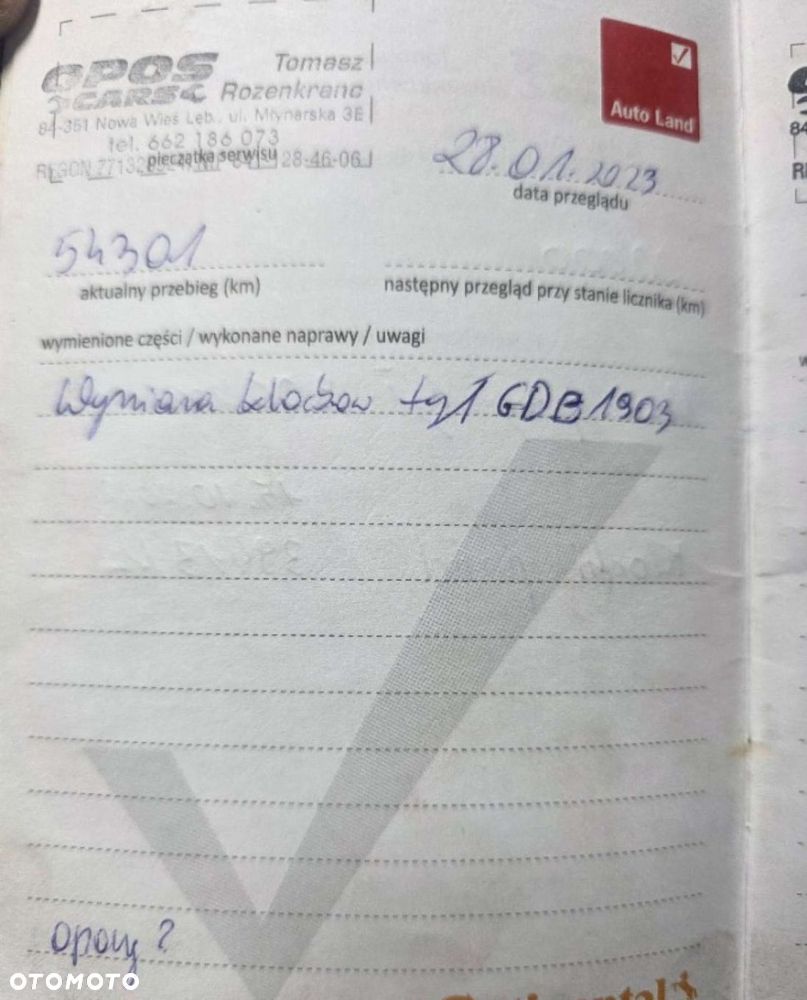 OPOS Tomasz
CARS Rozenkranc
84-351 Nowa Wieś Lęb., ul. Młynarska 3E
tel. 662 186 073
REGON 28-46-061
pieczątka serwisu
Auto Land
28.01.2023
data przeglądu
54301
aktualny przebieg (km)
następny przegląd przy stanie licznika (km)
wymienione części / wykonane naprawy / uwagi
Wymiana klocków tył GDB1903
opony ?
OTOMOTO
Continental
84